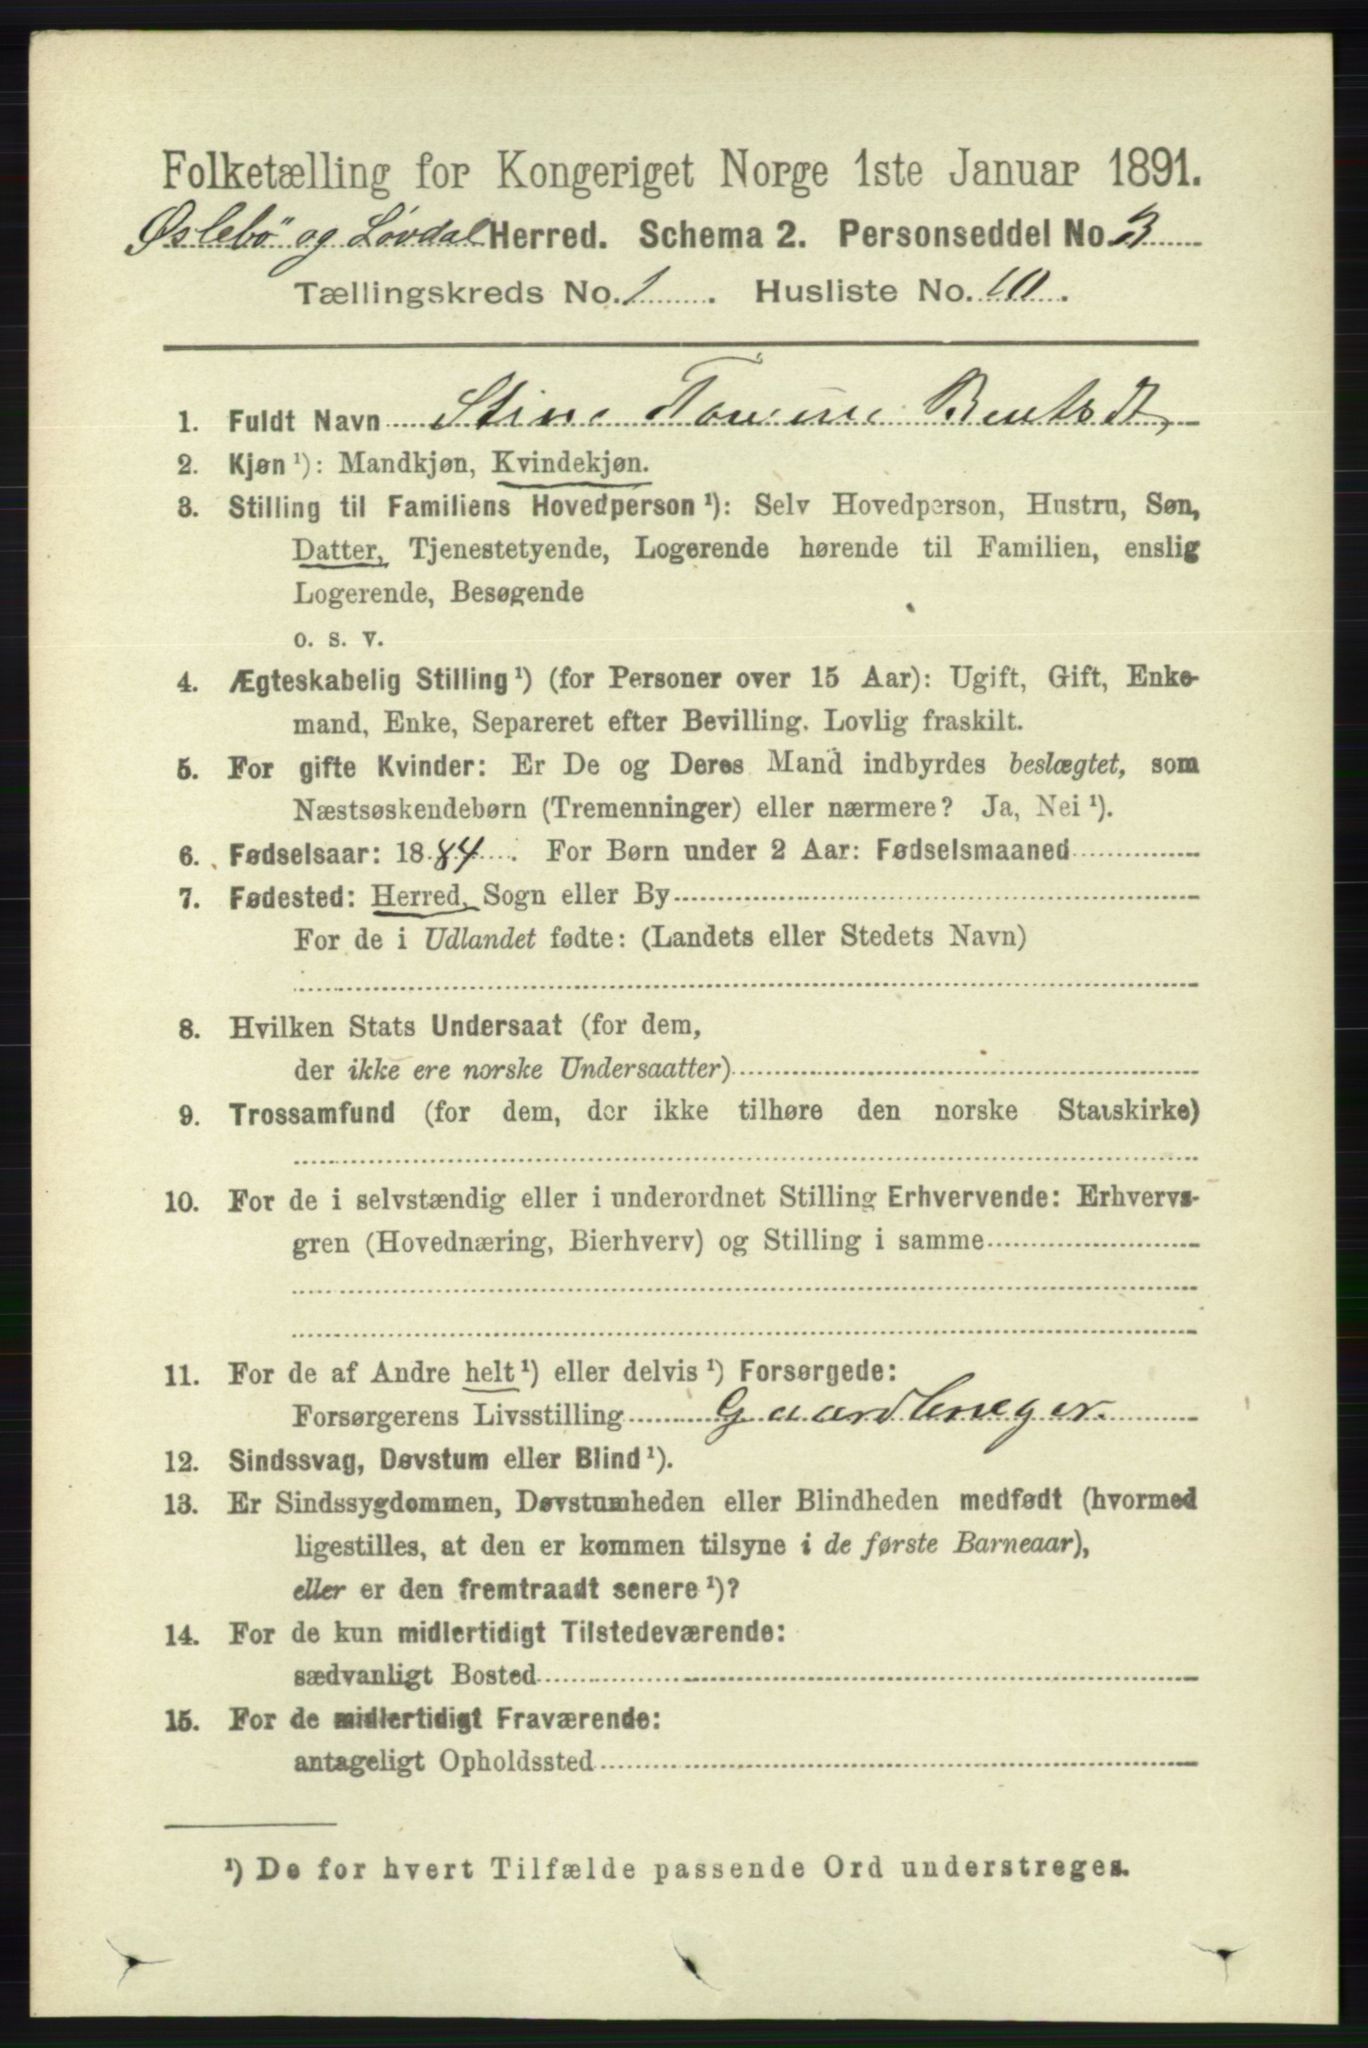 Folketælling for Kongeriget Norge 1ste Januar 1891.
Øslebö og Lövdal Herred. Schema 2. Personseddel No. 3
Tællingskreds No. 1. Husliste No. 10.
1. Fuldt Navn Stine Bentsdt,
2. Kjøn ¹): Mandkjøn, Kvindekjøn.
3. Stilling til Familiens Hovedperson ¹): Selv Hovedperson, Hustru, Søn,
Datter, Tjenestetyende, Logerende hørende til Familien, enslig
Logerende, Besøgende
o. s. v.
4. Ægteskabelig Stilling ¹) (for Personer over 15 Aar): Ugift, Gift, Enke-
mand, Enke, Separeret efter Bevilling. Lovlig fraskilt.
5. For gifte Kvinder: Er De og Deres Mand indbyrdes beslægtet, som
Næstsøskendebørn (Tremenninger) eller nærmere? Ja, Nei ¹).
6. Fødselsaar: 1884. For Børn under 2 Aar: Fødselsmaaned
7. Fødested: Herred, Sogn eller By
For de i Udlandet fødte: (Landets eller Stedets Navn)
8. Hvilken Stats Undersaat (for dem,
der ikke ere norske Undersaatter)
9. Trossamfund (for dem, der ikke tilhøre den norske Statskirke)
10. For de i selvstændig eller i underordnet Stilling Erhvervende: Erhvervs-
gren (Hovednæring, Bierhverv) og Stilling i samme
11. For de af Andre helt ¹) eller delvis ¹) Forsørgede:
Forsørgerens Livsstilling Gaardbruger.
12. Sindssvag, Døvstum eller Blind ¹).
13. Er Sindssygdommen, Døvstumheden eller Blindheden medfødt (hvormed
ligestilles, at den er kommen tilsyne i de første Barneaar),
eller er den fremtraadt senere ¹)?
14. For de kun midlertidigt Tilstedeværende:
sædvanligt Bosted
15. For de midlertidigt Fraværende:
antageligt Opholdssted
¹) De for hvert Tilfælde passende Ord understreges.